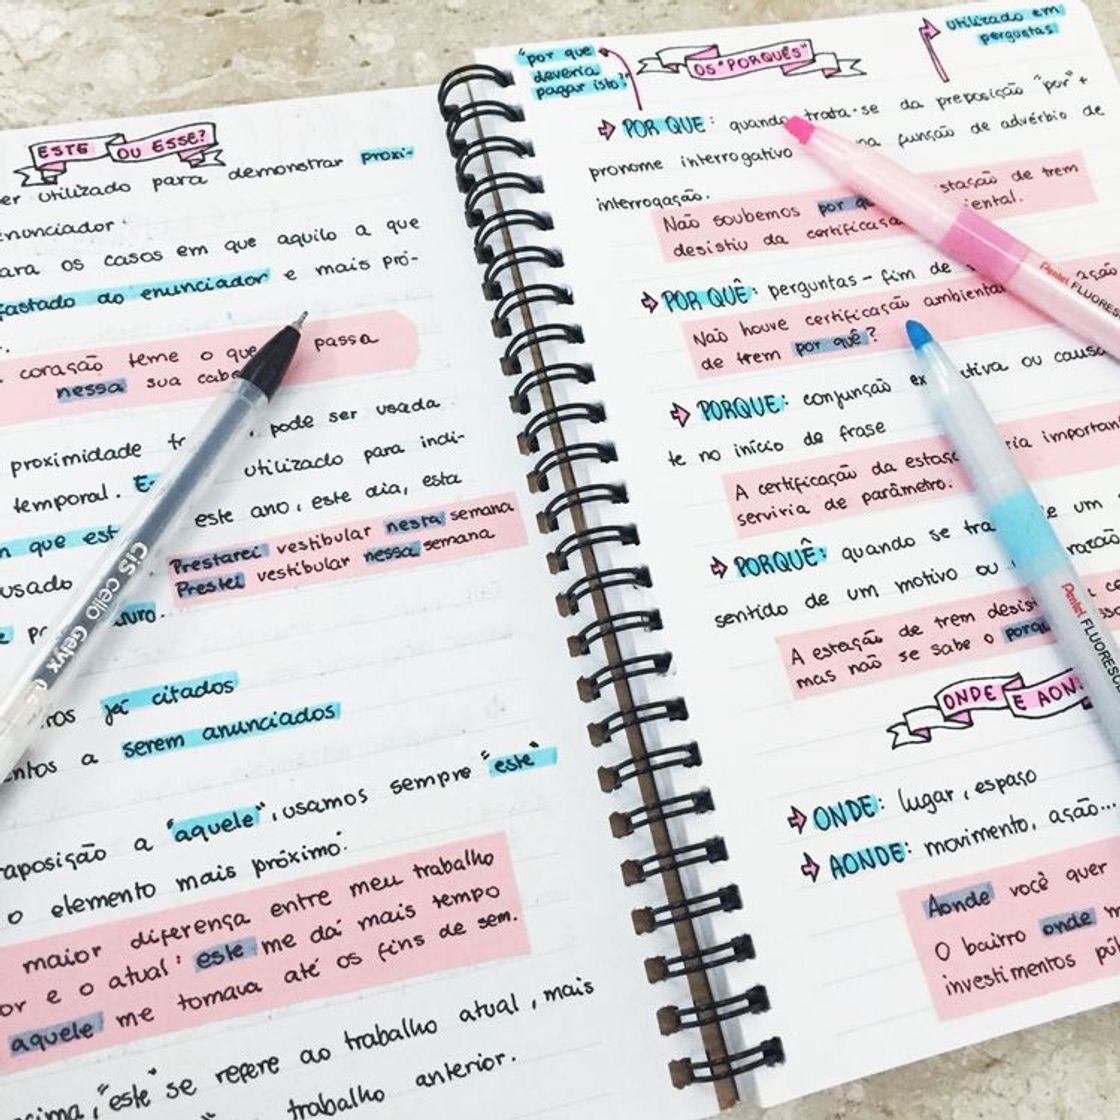 ESTE OU ESSE?
er utilizado para demonstrar proxi-
enunciador.
ara os casos em que aquilo a que
fastado do enunciador e mais pró-
coração teme o que passa
nessa sua cabe
proximidade pode ser usada
temporal. E utilizado para indi-
n que est este ano, este dia, esta
Prestarei vestibular nesta semana
usado Prestei vestibular nessa semana
uro.
ros já citados
entos a serem anunciados
raposição a "aquele", usamos sempre "este"
o elemento mais próximo:
maior diferença entre meu trabalho
or e o atual: este me dá mais tempo
aquele me tomava até os fins de sem.
cima, "este" se refere ao trabalho atual, mais
trabalho anterior.
CIS cello Gelyx
"por que
deveria
pagar isto?"
OS "PORQUÊS"
utilizado em
perguntas
POR QUE: quando trata-se da preposição "por" +
pronome interrogativo na função de advérbio de
interrogação.
Não soubemos por qu stação de trem
desistiu da certificaç iental.
POR QUÊ: perguntas - fim de
Não houve certificação ambiental ação
de trem por quê?
PORQUE: conjunção ex tiva ou causa
te no início de frase
A certificação da estaç ria important
serviria de parâmetro.
PORQUÊ: quando se tra e um
sentido de um motivo ou razão
A estação de trem desisti
mas não se sabe o porqu
ONDE E AON
ONDE: lugar, espaço
AONDE: movimento, ação...
Aonde você quer
O bairro onde
investimentos púb
Pentel FLUORESC
Pentel FLUORESC